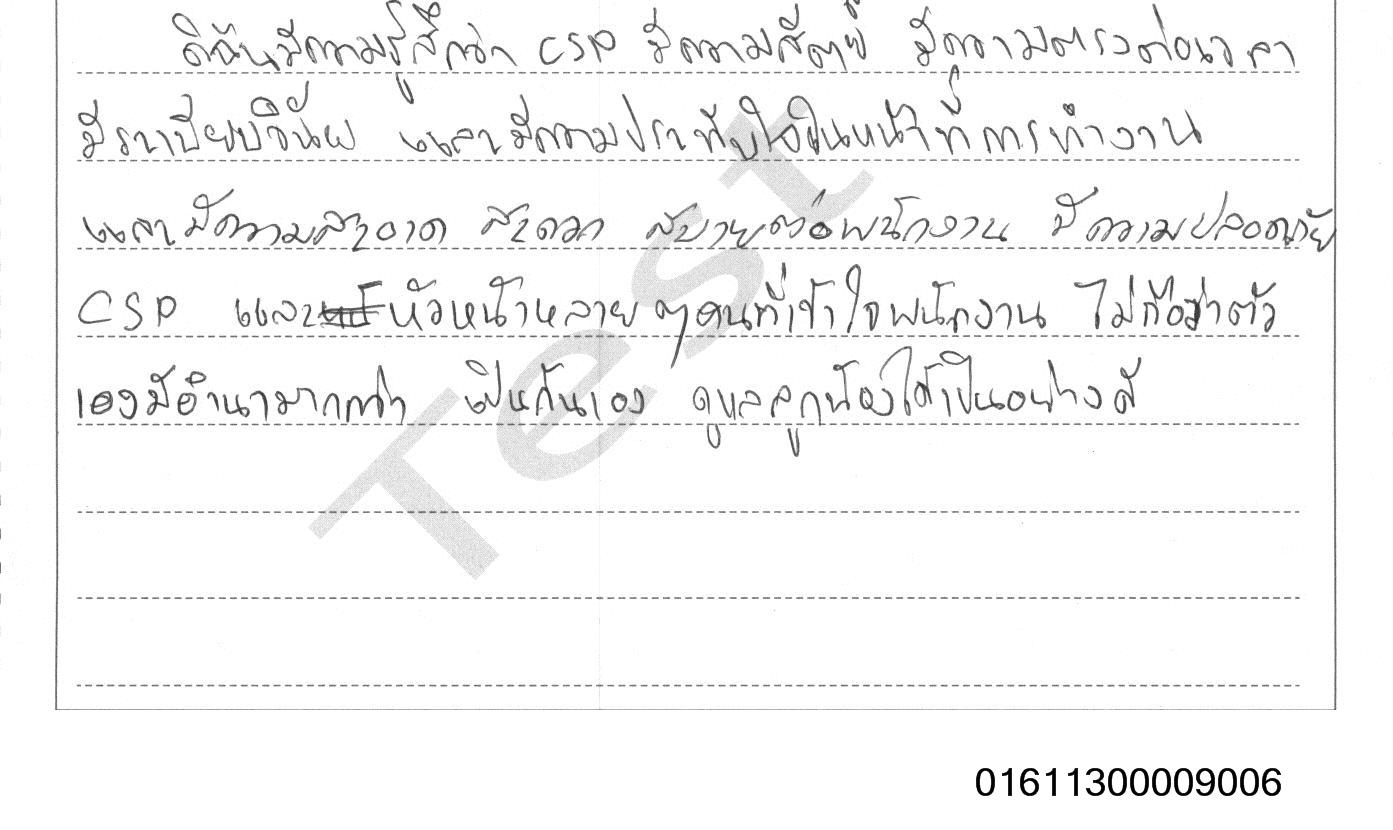 ดิฉันมีความรู้สึกว่า CSP มีความสัตย์ มีความตรงต่อเวลา
มีระเบียบวินัย และมีความประทับใจในหน้าที่การทำงาน
และมีความสะอาด สะดวก สบายต่อพนักงาน มีความปลอดภัย
CSP และหัวหน้าหลายๆคนที่เข้าใจพนักงาน ไม่ถือว่าตัว
เองมีอำนามากกว่า เป็นกันเอง ดูแลลูกน้องได้เป็นอย่างดี
Test
01611300009006